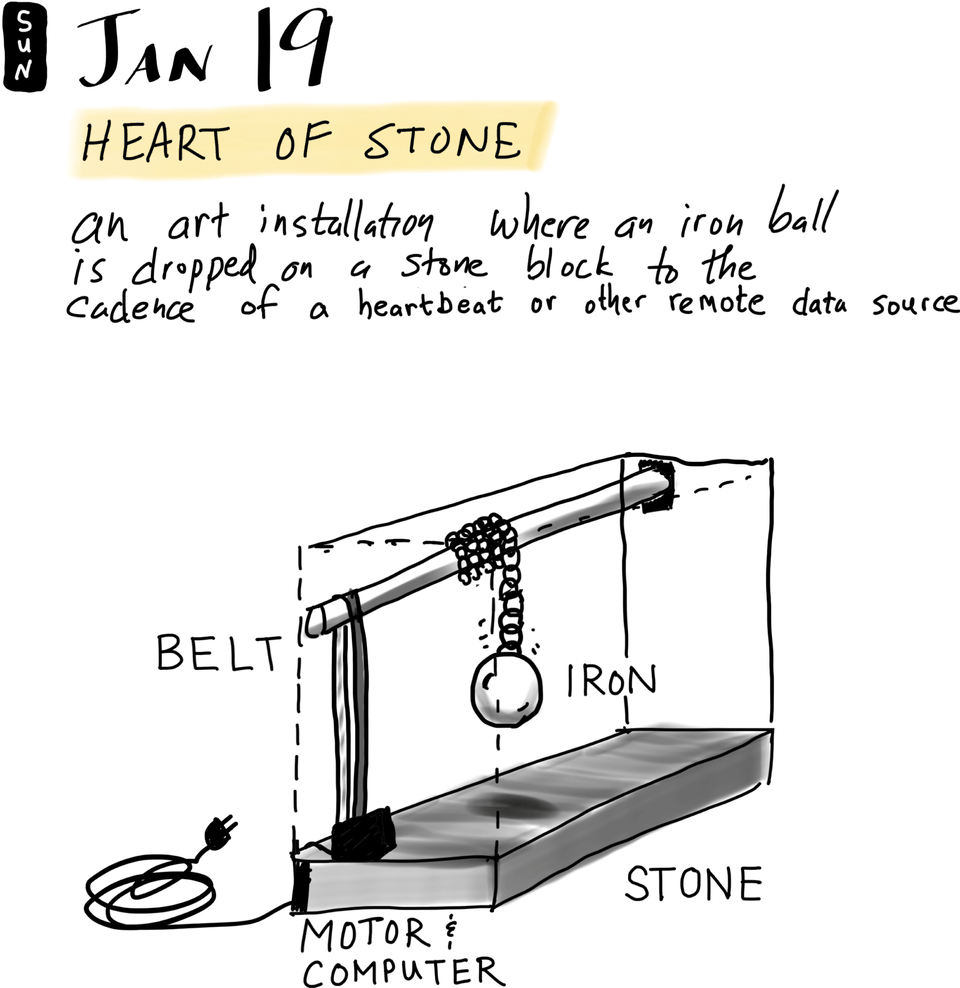 SUN
JAN 19
HEART OF STONE
an art installation where an iron ball
is dropped on a stone block to the
cadence of a heartbeat or other remote data source
BELT
IRON
STONE
MOTOR &
COMPUTER